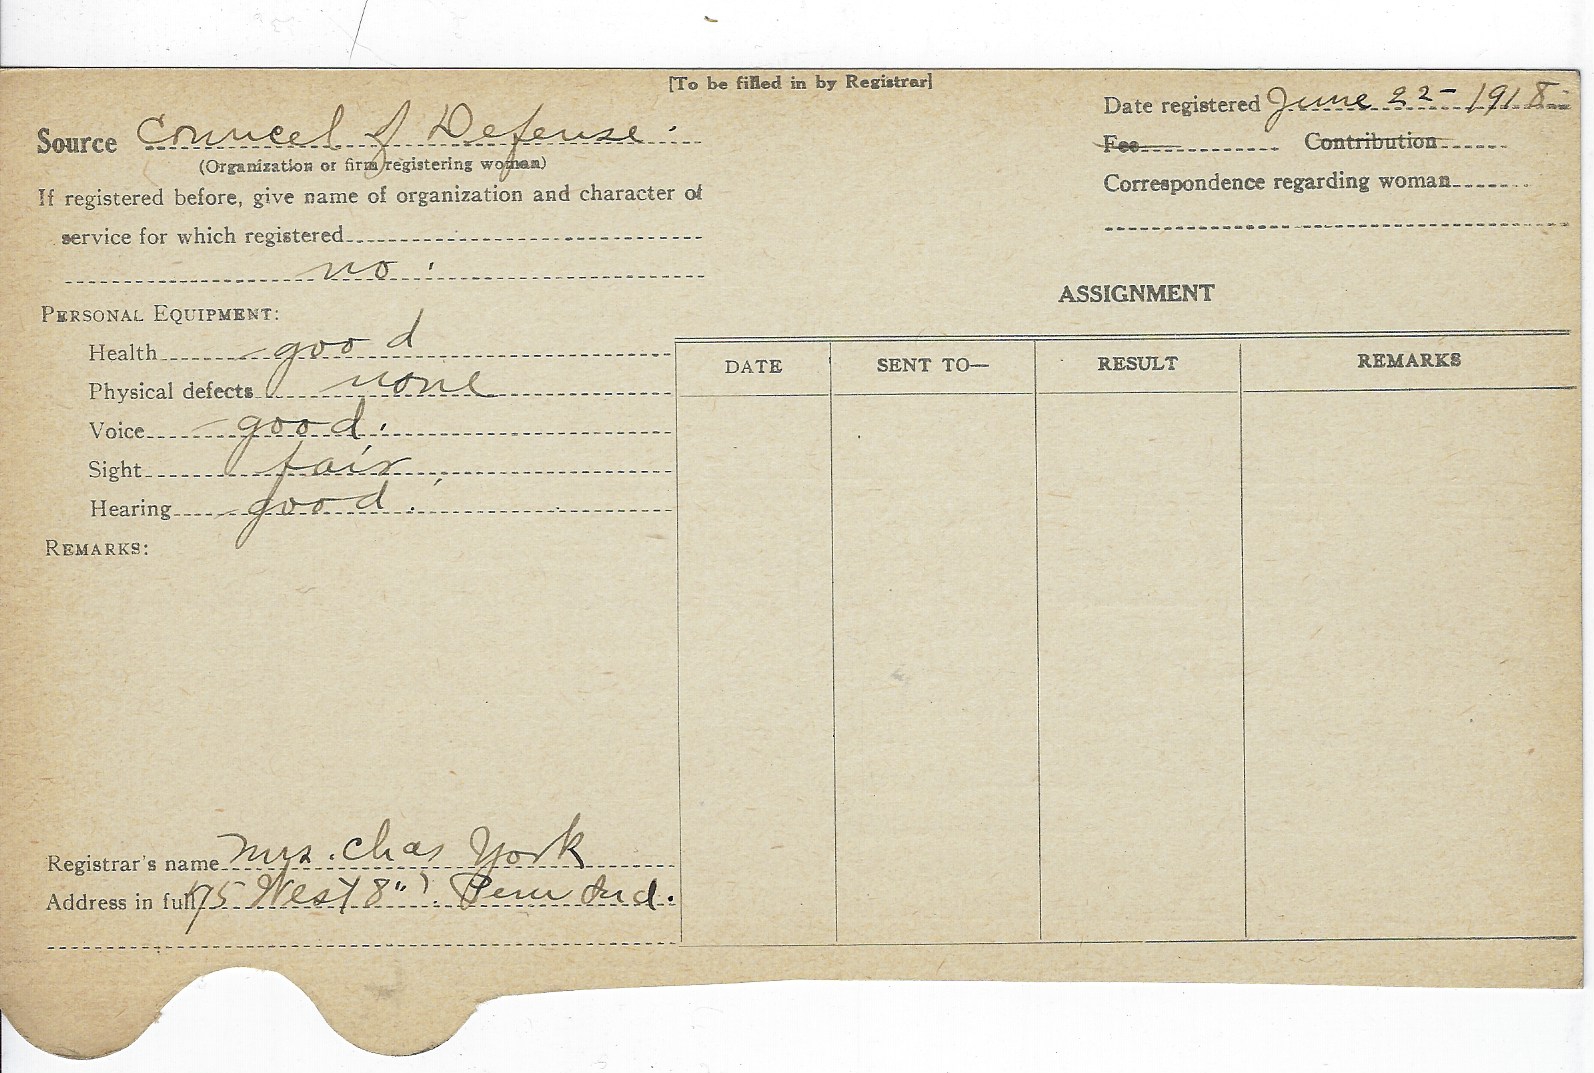 [To be filled in by Registrar]
Source Councel of Defense.
(Organization or firm registering woman)
If registered before, give name of organization and character of
service for which registered
no.
Date registered June 22- 1918-
Fee Contribution
Correspondence regarding woman
PERSONAL EQUIPMENT:
Health good
Physical defects none
Voice good.
Sight fair.
Hearing good.
REMARKS:
ASSIGNMENT
DATE SENT TO— RESULT REMARKS
Registrar's name Mrs. Chas York
Address in full 175 West 8". Peru Ind.